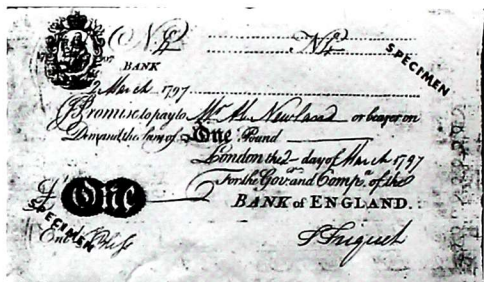 No. No.
SPECIMEN
BANK
2 March 1797
I Promise to pay to Mr. A. Newland or bearer on
Demand the sum of One Pound
London the 2 day of March 1797
For the Govr. and Compa. of the
£ One BANK of ENGLAND.
SPECIMEN
Entd.